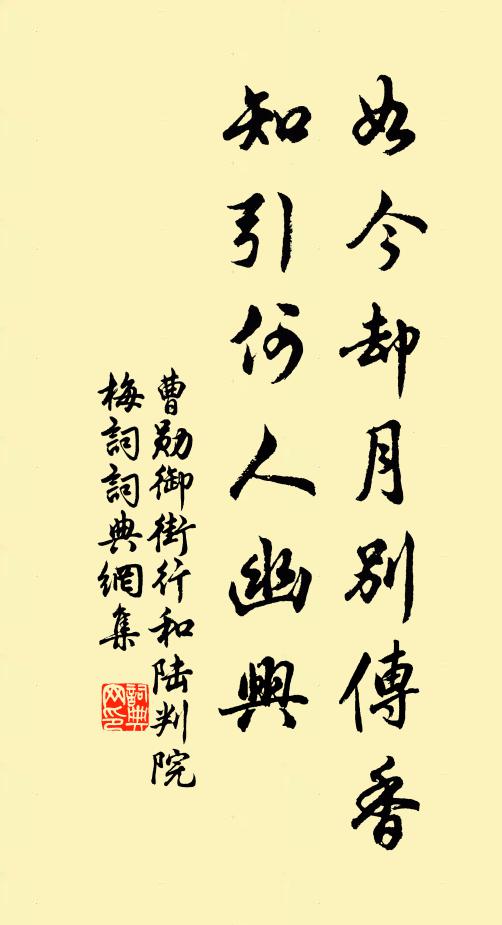 如今却月別傳香
知引何人幽興
曹勛御街行和陸判院
梅詞詞典網集
詞典网印